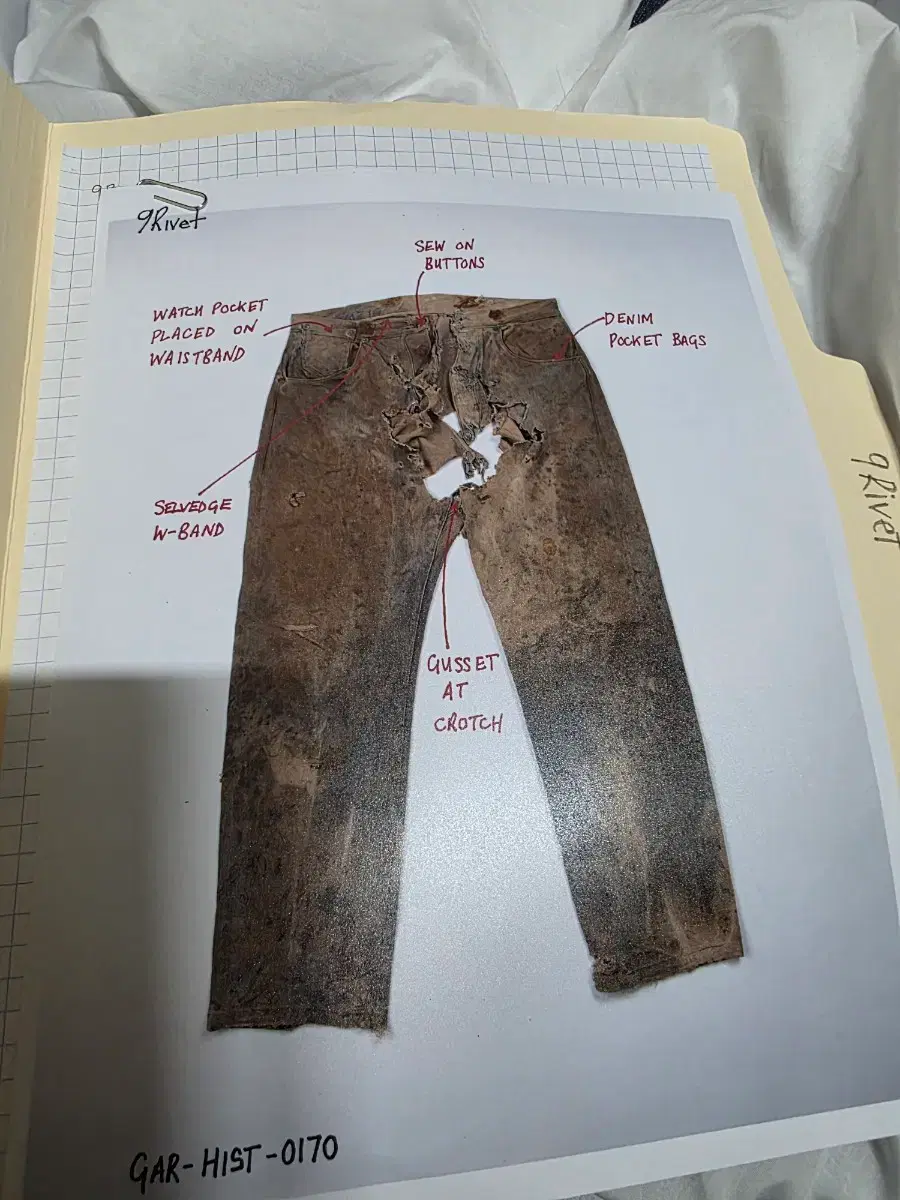 9Rivet
SEW ON
BUTTONS
WATCH POCKET
PLACED ON
WAISTBAND
DENIM
POCKET BAGS
SELVEDGE
W-BAND
9 Rivet
GUSSET
AT
CROTCH
GAR-HIST-0170